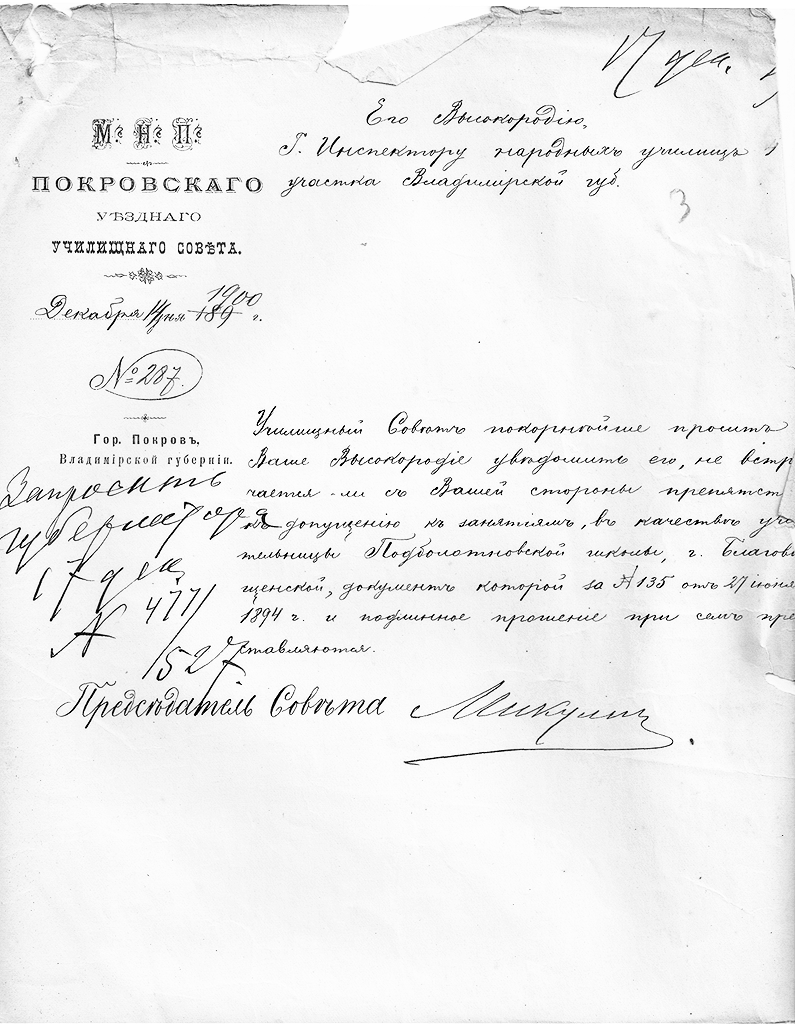 17 дек.
Его Высокородію,
Г. Инспектору народныхъ училищъ 1
участка Владимірской губ.
3
М. Н. П.
ПОКРОВСКАГО
УѢЗДНАГО
УЧИЛИЩНАГО СОВѢТА.
Декабря 14 дня 189 1900 г.
№ 287.
Гор. Покровъ,
Владимірской губерніи.
Училищный Совѣтъ покорнѣйше проситъ
Ваше Высокородіе увѣдомить его, не встрѣ
чается-ли съ Вашей стороны препятст
къ допущенію къ занятіямъ, въ качествѣ учи
тельницы Подболотновской школы, г. Благовѣ
щенской, документъ которой за № 135 отъ 27 іюня
1894 г. и подлинное прошеніе при семъ пре
ставляются.
Запросить
губернатора
17 дек
№ 477/
1527
Предсѣдатель Совѣта Микулин